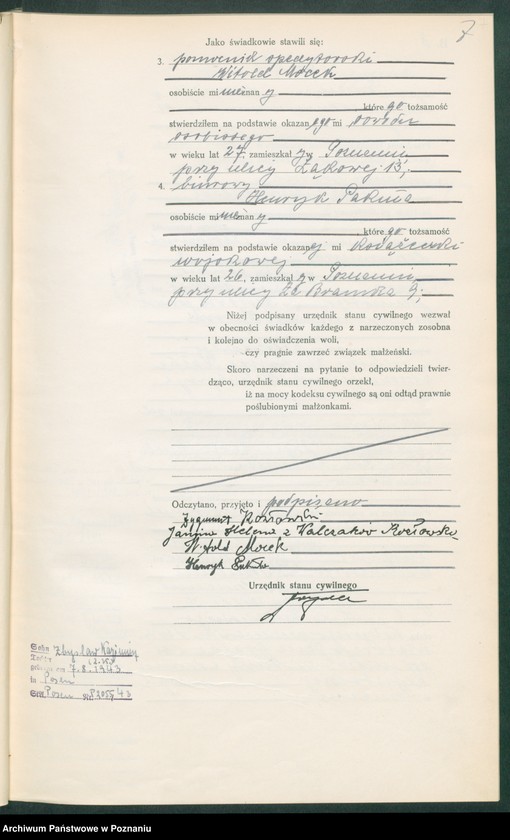 7
Jako świadkowie stawili się:
3. pomocnik spedytorski
Witold Mocek
osobiście mi nieznany
którego tożsamość
stwierdziłem na podstawie okazanego mi dowodu
osobistego
w wieku lat 27, zamieszkały w Poznaniu
przy ulicy Łąkowej 13,
4. biurowy
Henryk
osobiście mi nieznany
którego tożsamość
stwierdziłem na podstawie okazanej mi książeczki
wojskowej
w wieku lat 26, zamieszkały w Poznaniu
przy ulicy Za Bramką 9;
Niżej podpisany urzędnik stanu cywilnego wezwał
w obecności świadków każdego z narzeczonych zosobna
i kolejno do oświadczenia woli,
czy pragnie zawrzeć związek małżeński.
Skoro narzeczeni na pytanie to odpowiedzieli twier-
dząco, urzędnik stanu cywilnego orzekł,
iż na mocy kodeksu cywilnego są oni odtąd prawnie
poślubionymi małżonkami.
Odczytano, przyjęto i podpisano
Zygmunt Kozłowski
Janina Helena z Walczaków Kozłowska
Witold Mocek
Henryk
Urzędnik stanu cywilnego
Sohn Zbysław Kazimierz
geboren am 7.8.1943
in Posen
StA Posen nr 2055/43
Archiwum Państwowe w Poznaniu